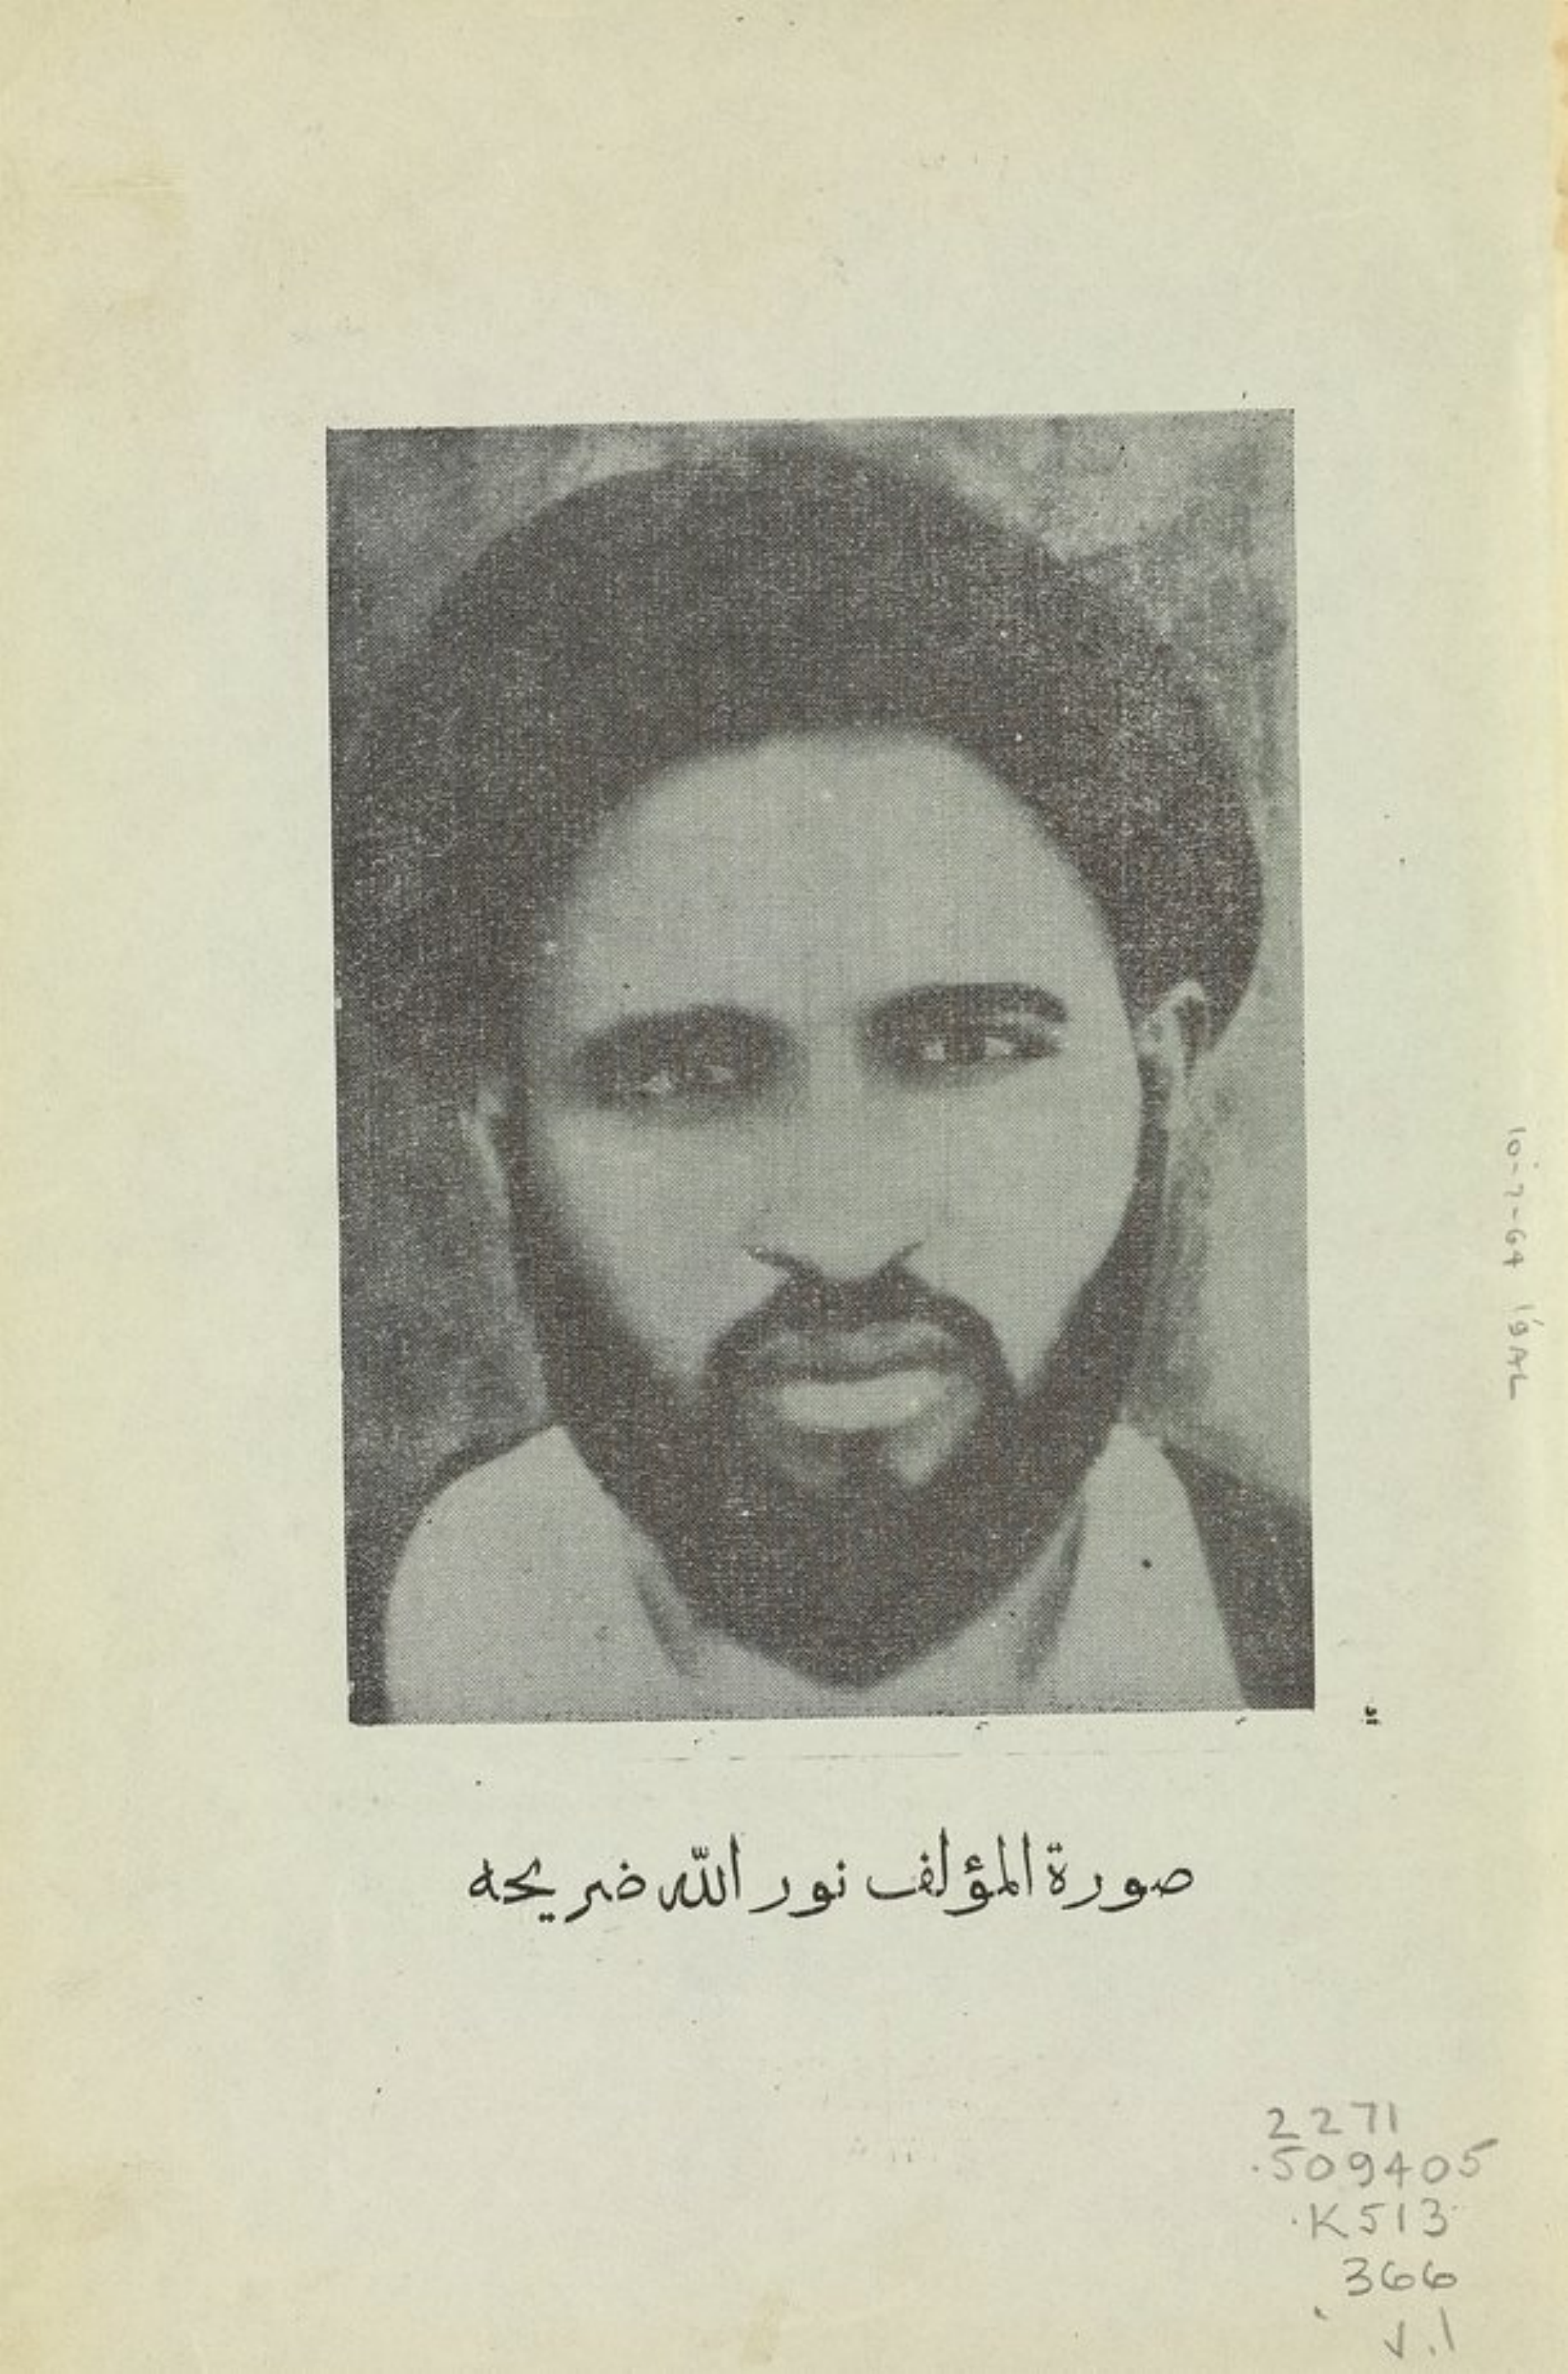 صورة المؤلف نور الله ضريحه
2271
.509405
.K513
366
v.1